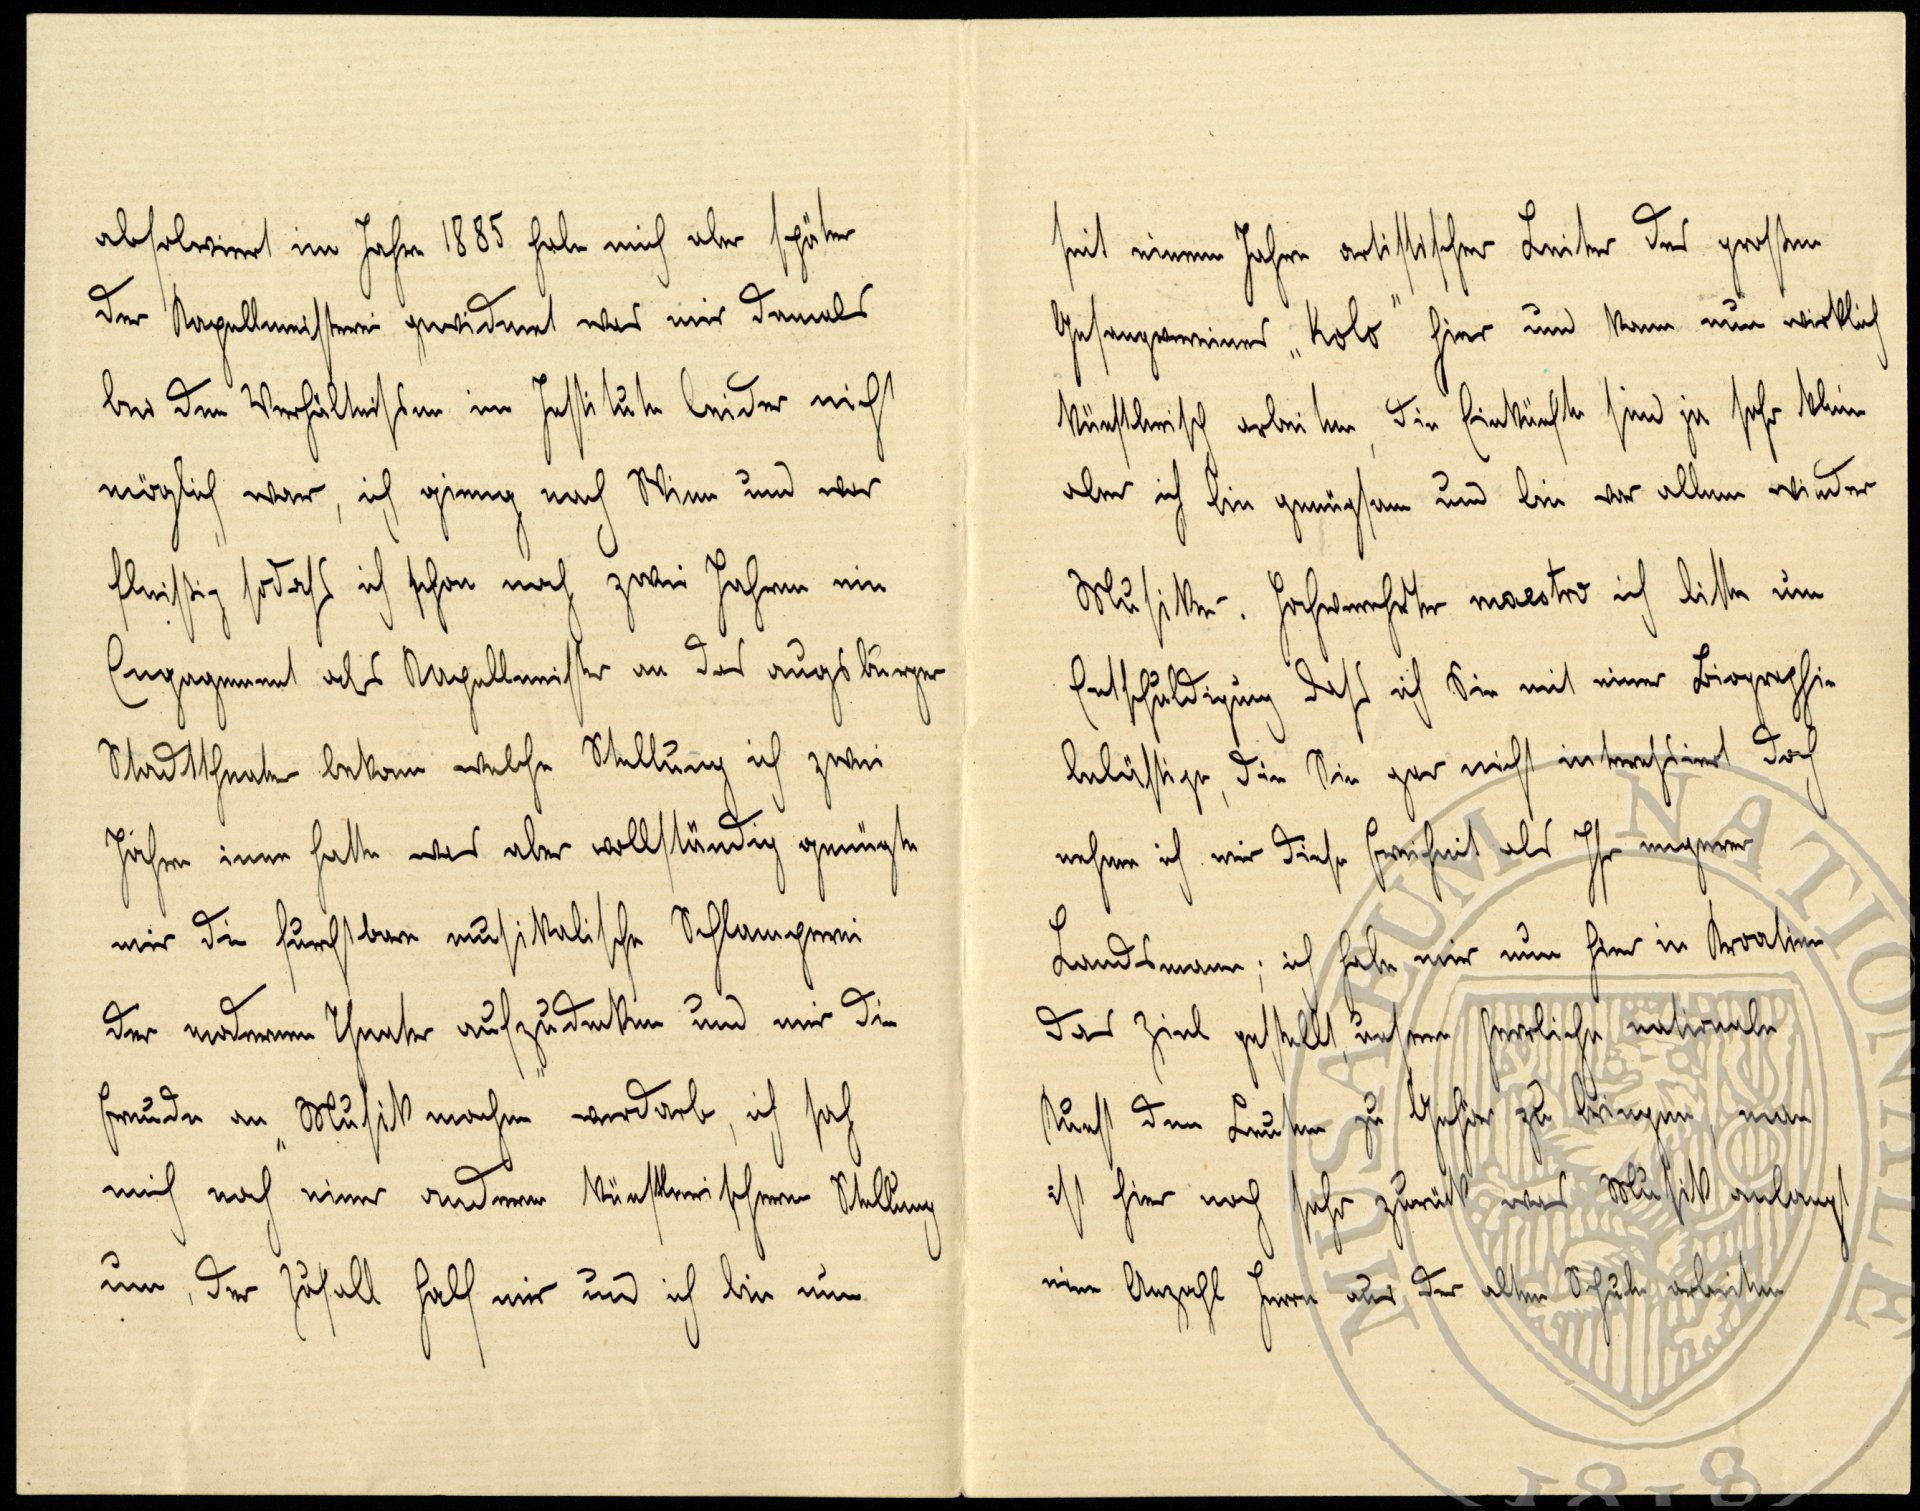 absolviert im Jahre 1885 habe mich aber später
der Kapellmeisterei gewidmet was mir damals
bei den Verhältnissen im Institute leider nicht
möglich war, ich gieng nach Wien und war
fleissig sodass ich schon nach zwei Jahren ein
Engagement als Kapellmeister an das augsburger
Stadttheater bekam welche Stellung ich zwei
Jahre inne hatte was aber vollständig genügte
mir die furchtbare musikalische Schlamperei
der modernen Theater aufzudecken und mir die
Freude an „Musik machen" verdarb, ich sah
mich nach einer anderen künstlerischeren Stellung
um, der Zufall half mir und ich bin nun
seit einem Jahre artistischer Leiter des grossen
Gesangvereines „Kolo" hier und kann nun wirklich
künstlerisch arbeiten, die Einkünfte sind ja sehr klein
aber ich bin genügsam und bin vor allem wieder
Musiker. Hochverehrter maestro ich bitte um
Entschuldigung dass ich Sie mit einer Biographie
belästige, die Sie gar nicht interessiert doch
nehme ich mir diese Freiheit als Ihr engerer
Landsmann; ich habe mir nun hier in Kroatien
das Ziel gestellt, unsere herrliche nationale
Kunst den Leuten zu Gehör zu bringen, man
ist hier noch sehr zurück was Musik anlangt
eine Anzahl Herrn aus der alten Schule arbeiten
MUSAEUM NATIONALE
1818